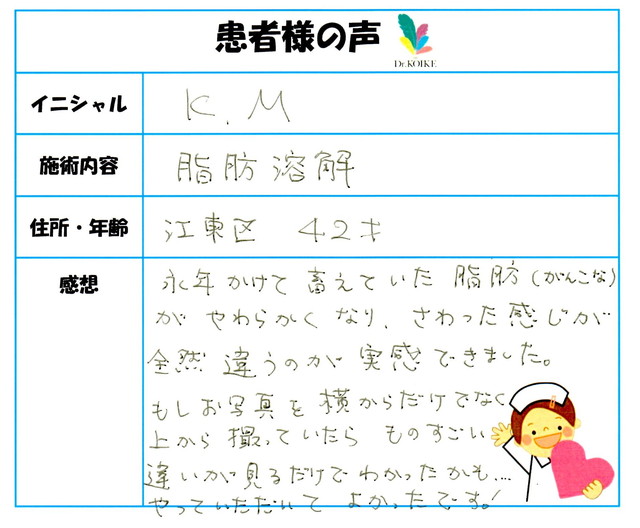 患者様の声
Dr.KOIKE
イニシャル K.M
施術内容 脂肪溶解
住所・年齢 江東区 42才
感想
永年かけて蓄えていた脂肪(がんこな)
が やわらかく なり、さわった感じが
全然 違うのが 実感できました。
もしお写真を横からだけでなく
上から 撮っていたら ものすごい
違いが見るだけでわかったかも....
やっていただいて よかったです!